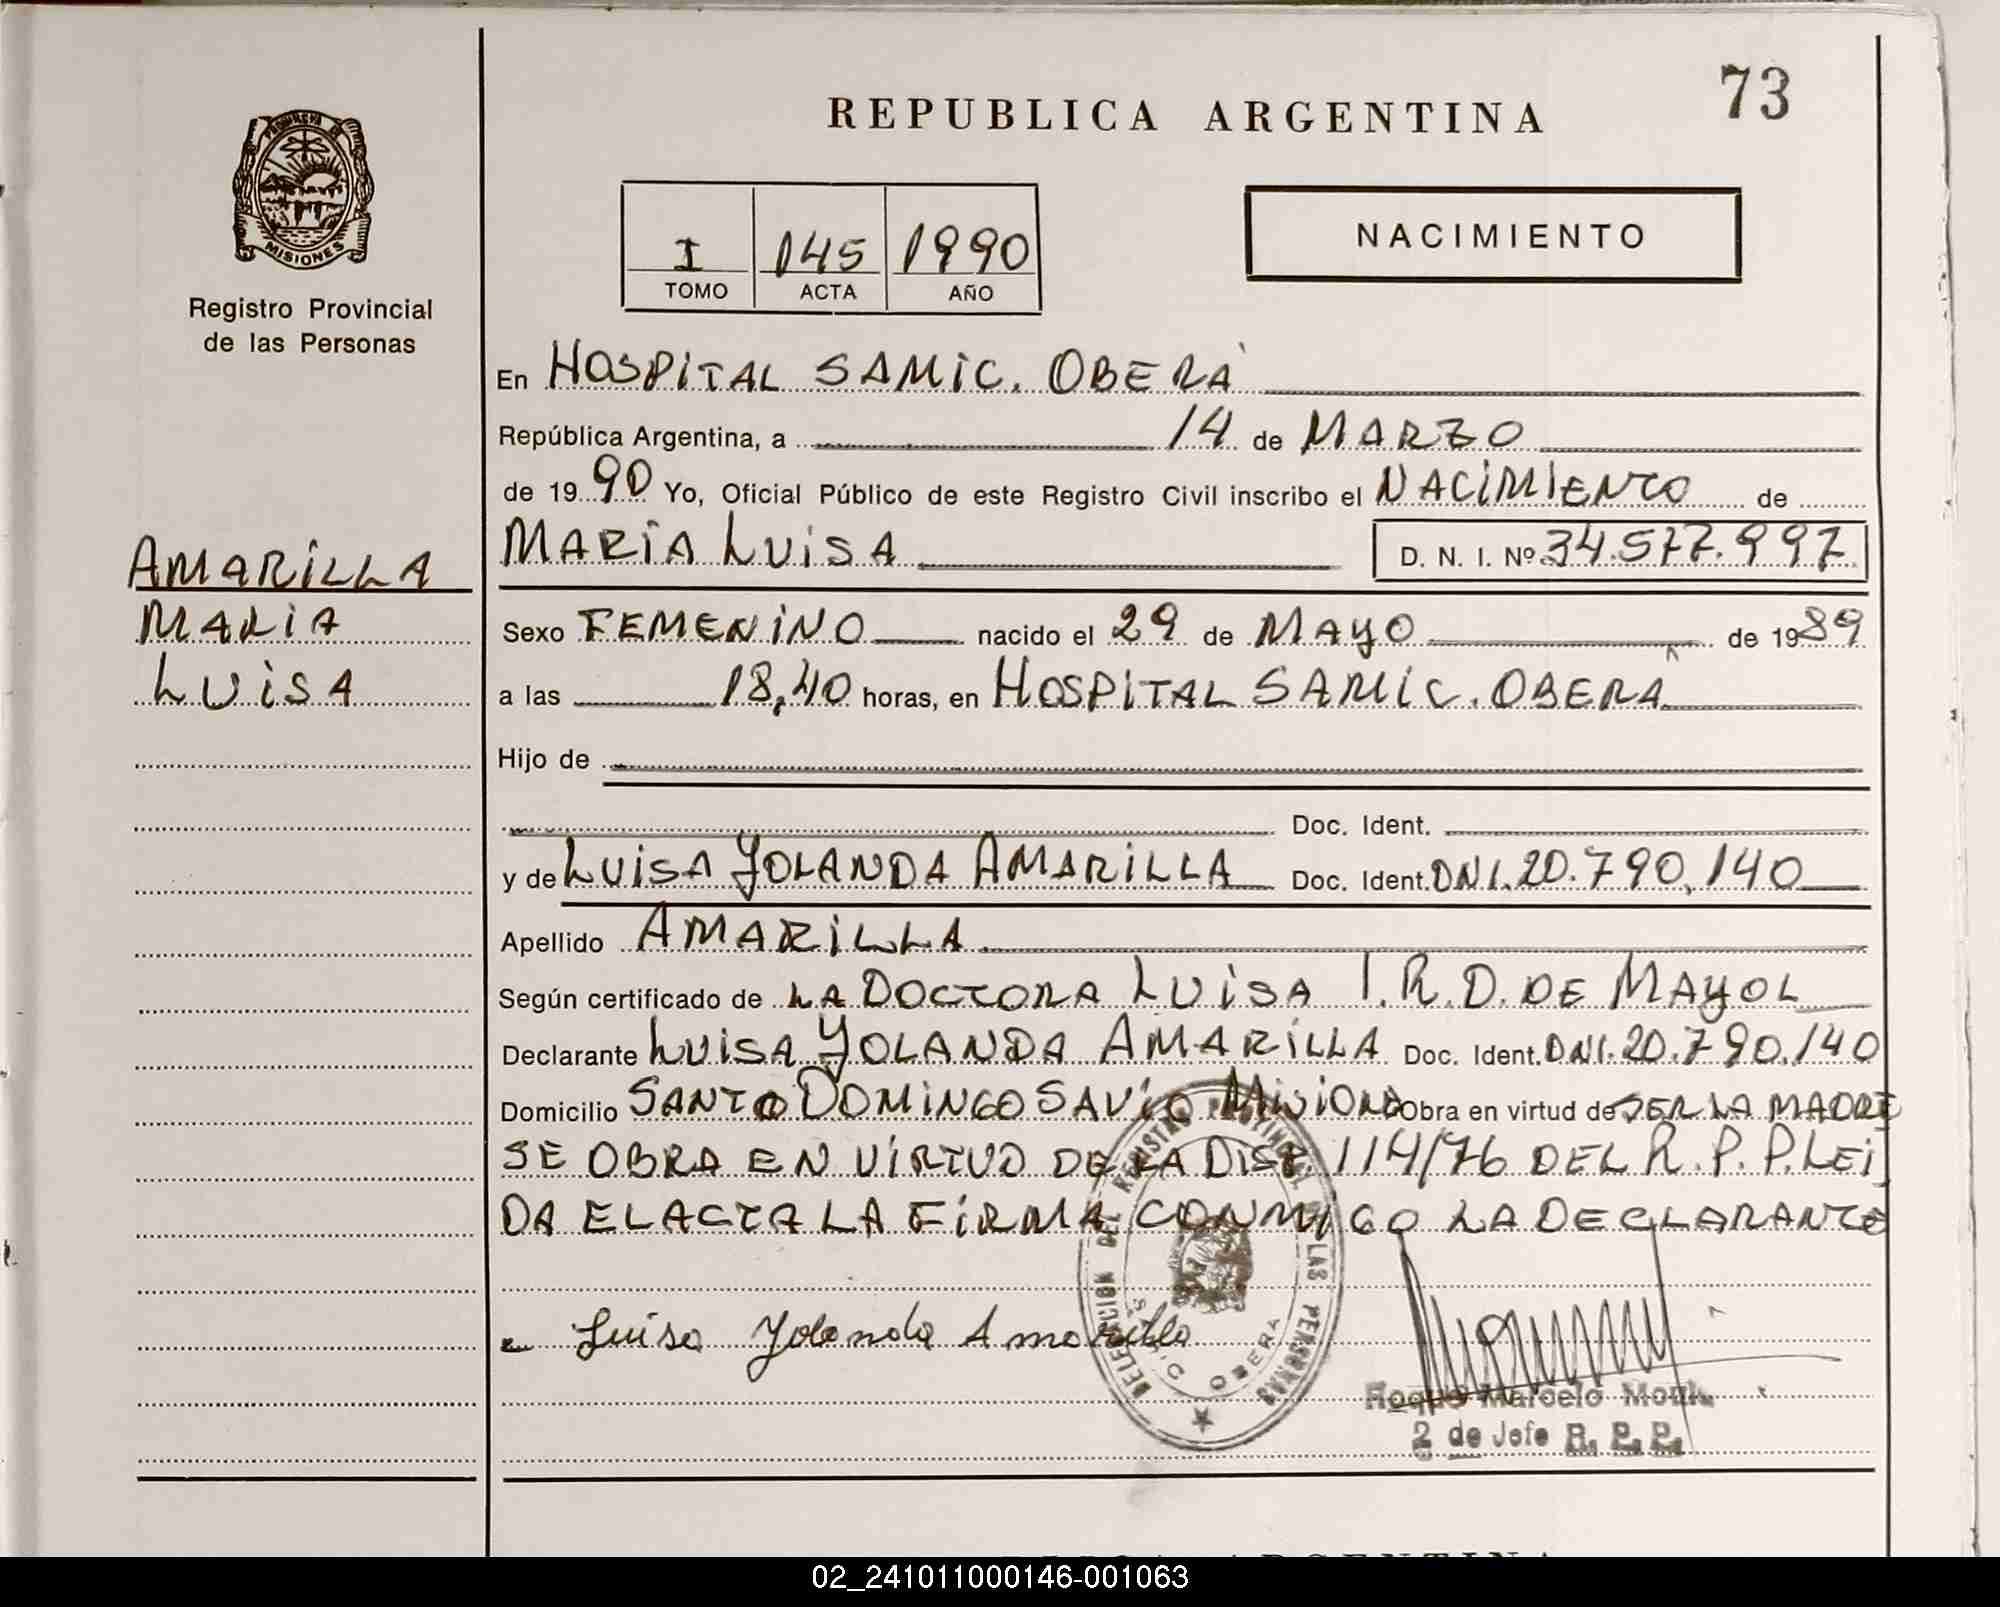 73
REPUBLICA ARGENTINA
PROVINCIA DE
MISIONES
Registro Provincial
de las Personas
I 145 1990
TOMO ACTA AÑO
NACIMIENTO
En HOSPITAL SAMIC. OBERÁ
República Argentina, a 14 de MARZO
de 1990 Yo, Oficial Público de este Registro Civil inscribo el NACIMIENTO de
MARIA LUISA D. N. I. Nº 34.577.997
AMARILLA
MARIA
LUISA
Sexo FEMENINO nacido el 29 de MAYO de 1989
a las 18,40 horas, en HOSPITAL SAMIC. OBERÁ
Hijo de
Doc. Ident.
y de LUISA YOLANDA AMARILLA Doc. Ident. DNI. 20.790.140
Apellido AMARILLA
Según certificado de LA DOCTORA LUISA I. R. D. DE MAYOL
Declarante LUISA YOLANDA AMARILLA Doc. Ident. DNI. 20.790.140
Domicilio SANTO DOMINGO SAVIO MISIONES Obra en virtud de SER LA MADRE
SE OBRA EN VIRTUD DE LA DISP. 114/76 DEL R. P. P. LEI
DA EL ACTA LA FIRMA CONMIGO LA DECLARANTE
Luisa Yolanda Amarilla
DELEGACION DEL REGISTRO PROVINCIAL DE LAS PERSONAS
SAMIC OBERA
Roque Marcelo
2 de Jefe R. P. P.
ARGENTINA
02_241011000146-001063